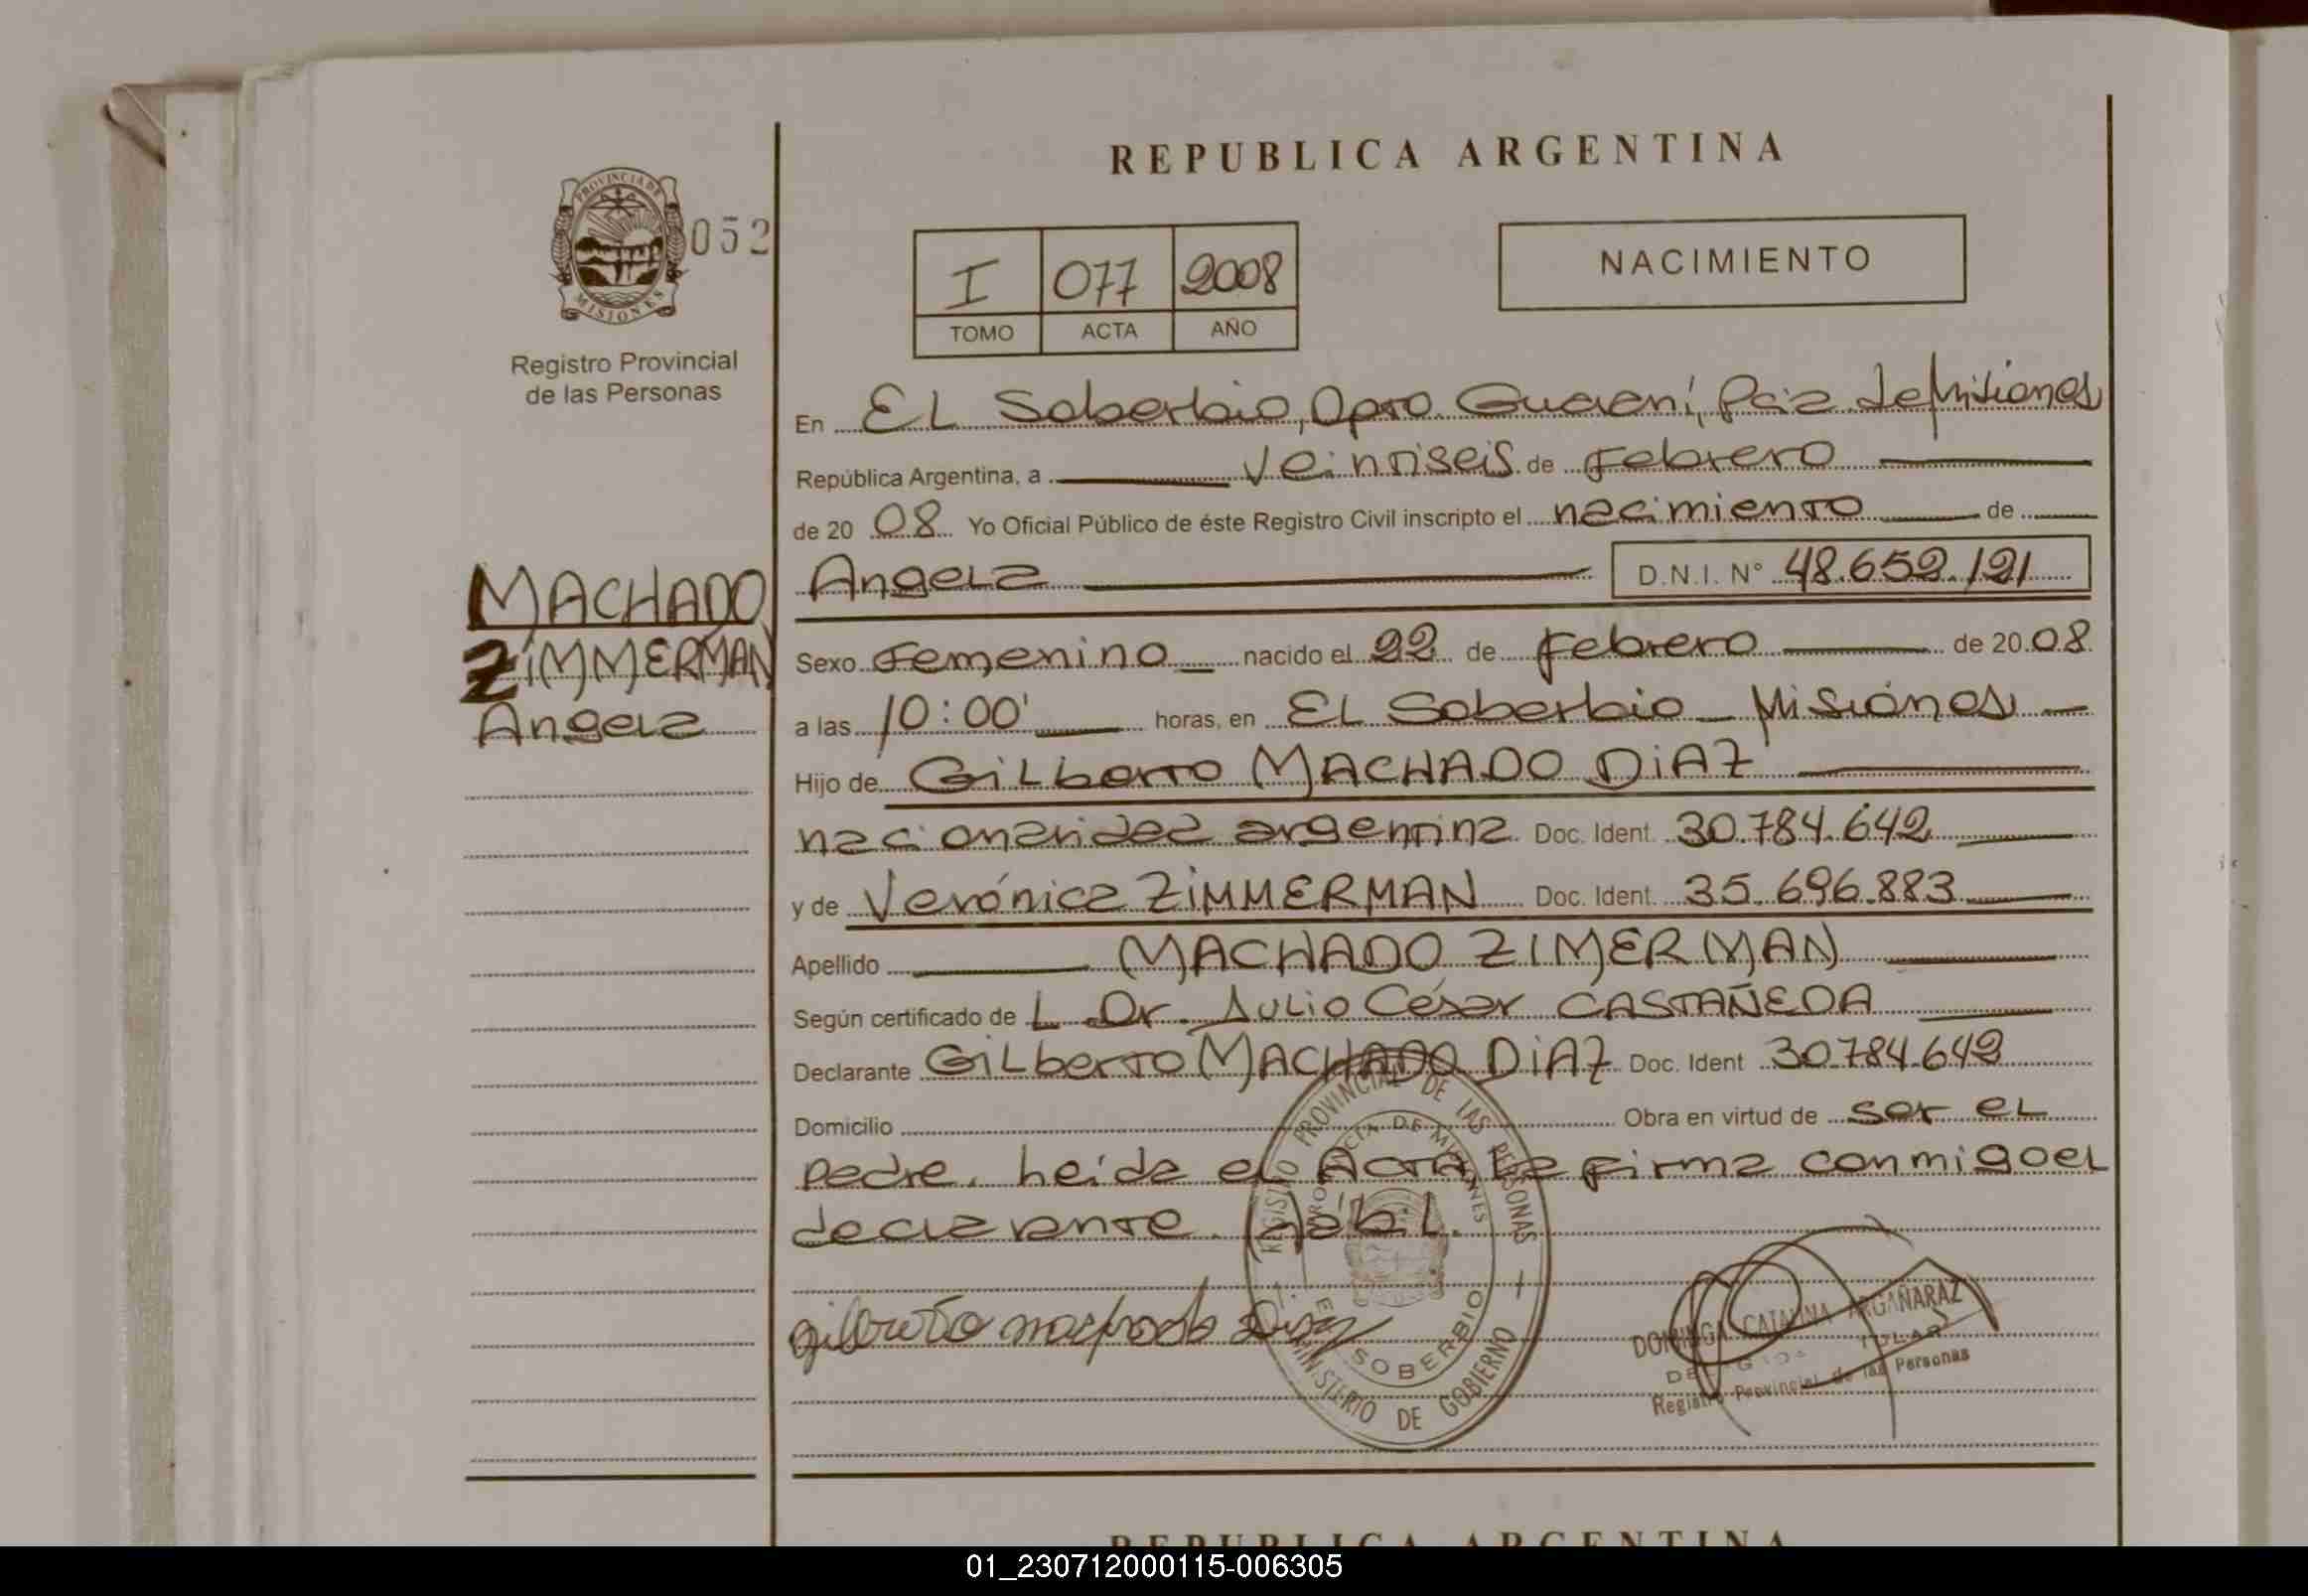 REPUBLICA ARGENTINA
PROVINCIA DE
MISIONES
052
Registro Provincial
de las Personas
I 077 2008
TOMO ACTA AÑO
NACIMIENTO
MACHADO
ZiMMERMAN
Angela
En EL Soberbio, Dpto. Guaraní, Pcia. de Misiones
República Argentina, a Veintiseis de Febrero
de 2008 Yo Oficial Público de éste Registro Civil inscripto el nacimiento de
Angela D.N.I. N° 48.652.121
Sexo Femenino nacido el 22 de Febrero de 2008
a las 10:00' horas, en EL Soberbio - Misiones -
Hijo de Gilberto MACHADO DiAZ
nacionalidad argentina Doc. Ident. 30.784.642
y de Verónica ZiMMERMAN Doc. Ident. 35.696.883
Apellido MACHADO ZIMERMAN
Según certificado de L Dr. Julio César CASTAÑEDA
Declarante GiLberto MACHADO DiAZ Doc. Ident 30784.642
Domicilio Obra en virtud de ser el
padre. Leída el Acta la firma conmigo el
declarante. Hábil.
gilberto machado Diaz
REGISTRO PROVINCIAL DE LAS PERSONAS
PROVINCIA DE MISIONES
EL SOBERBIO
MINISTERIO DE GOBIERNO
DOMINGA CATALINA ARGAÑARAZ
Registro Provincial de las Personas
REPUBLICA ARGENTINA
01_230712000115-006305